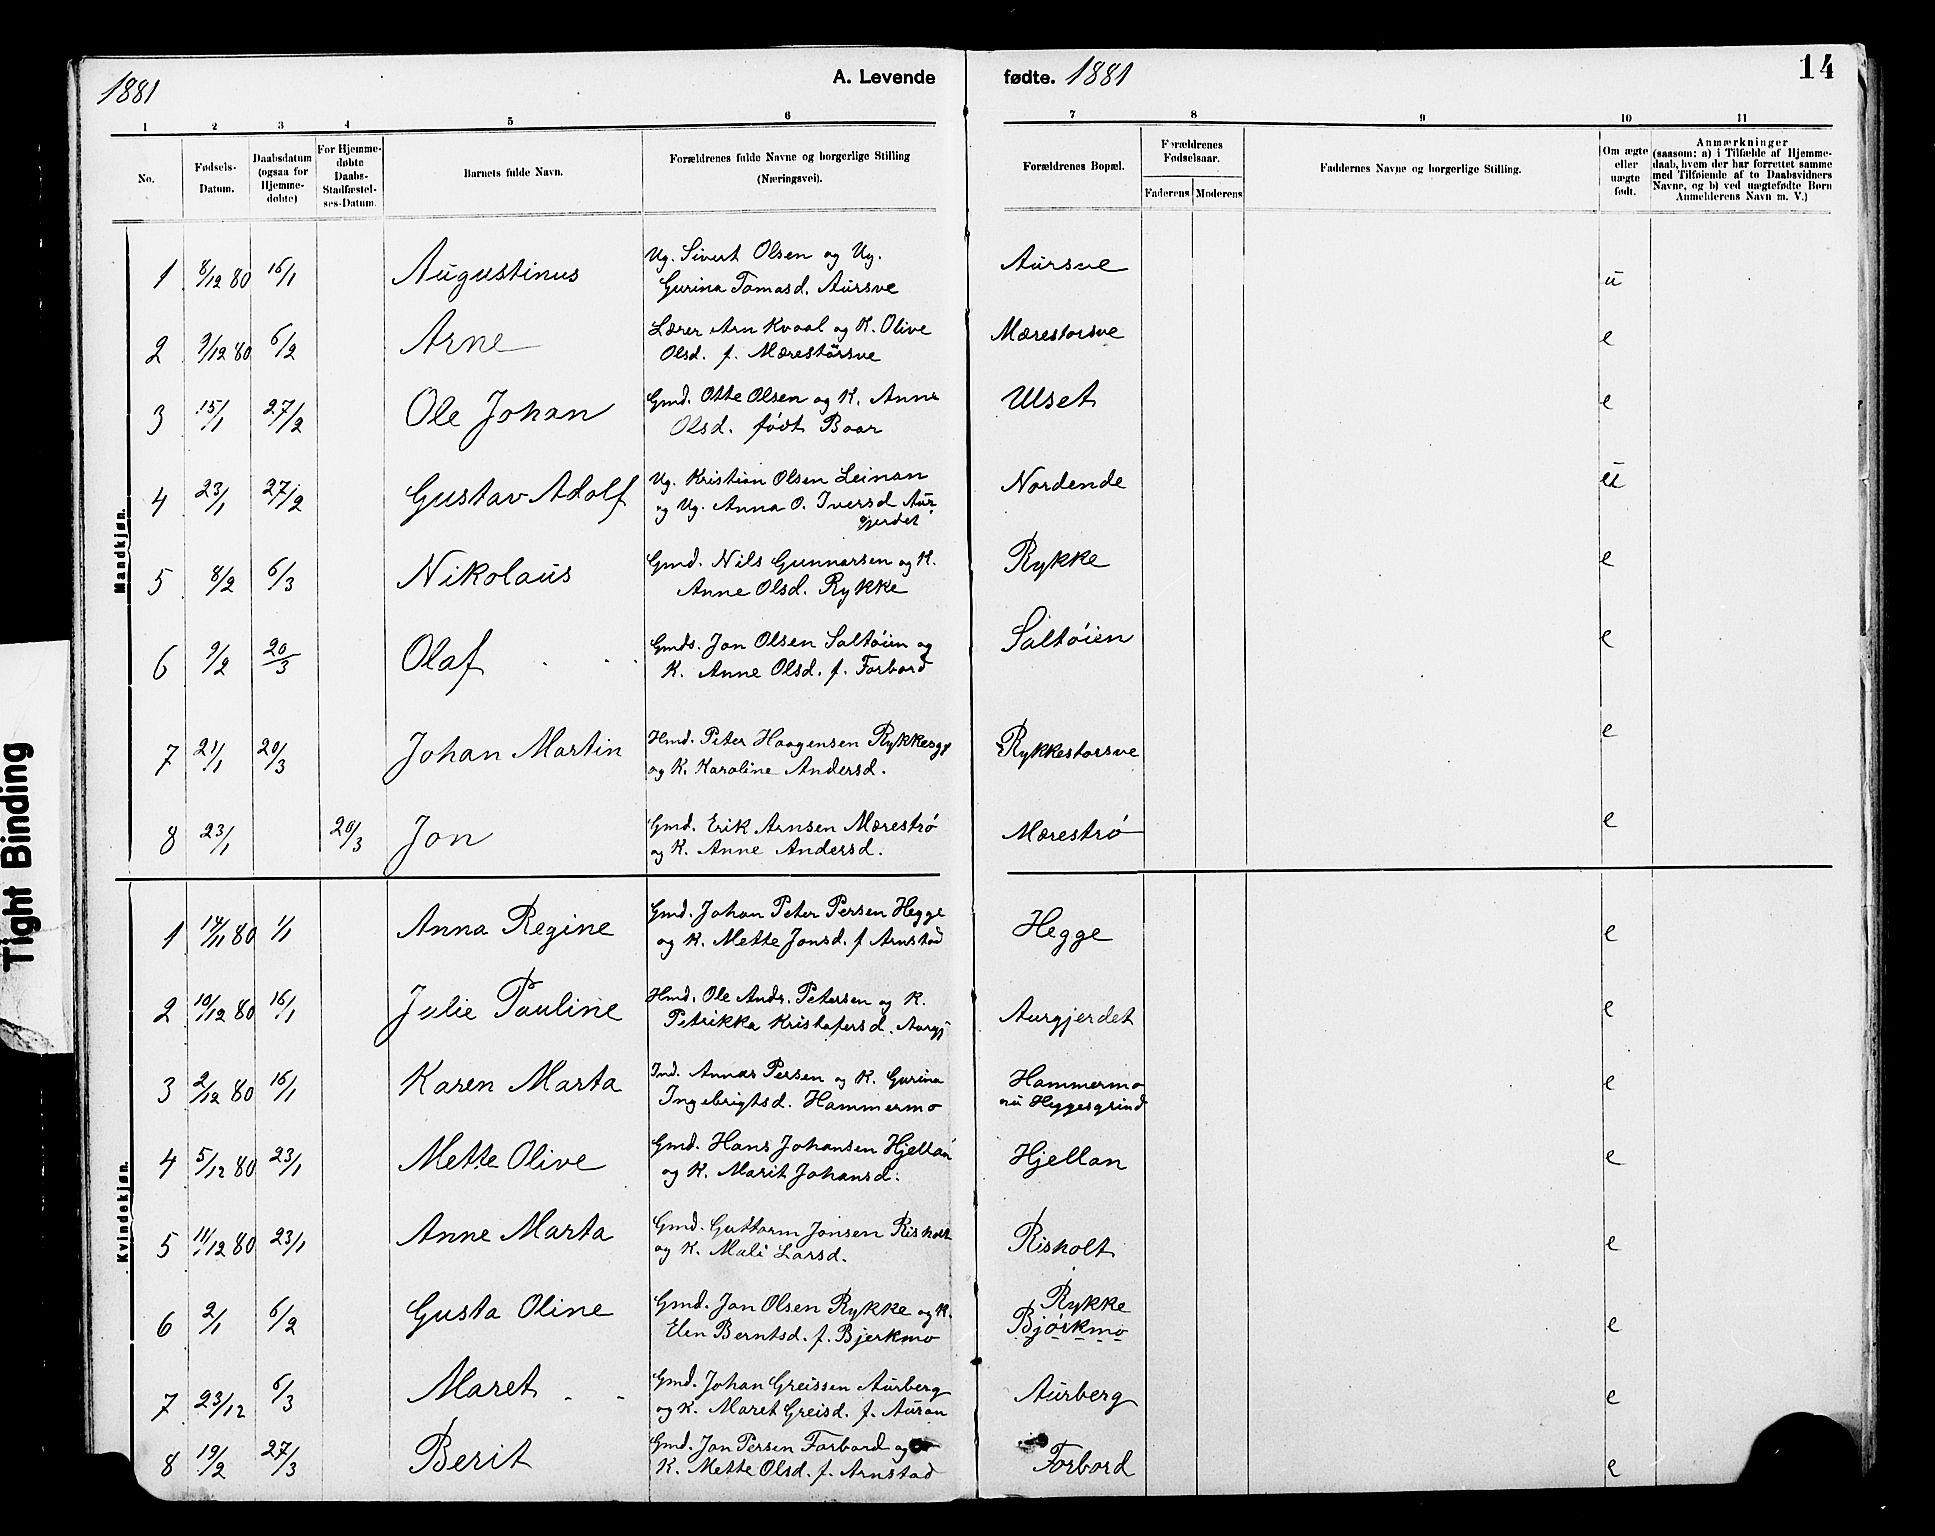 1881 A. Levende fødte. 1881 14
1 2 3 4 5 6 7 8 9 10 11
No.
Fødsels-
Datum.
Daabsdatum
(ogsaa for
Hjemme-
døbte)
For Hjemme-
døbte
Daabs-
Stadfæstel-
ses-Datum.
Barnets fulde Navn.
Forældrenes fulde Navne og borgerlige Stilling
(Næringsvei).
Forældrenes Bopæl.
Forældrenes
Fødselsaar.
Faderens Moderens
Faddernes Navne og borgerlige Stilling.
Om ægte
eller
uægte
født.
Anmærkninger
(saasom: a) i Tilfælde af Hjemme-
daab, hvem der har forrettet samme
med Tilføiende af to Daabsvidners
Navne, og b) ved uægtefødte Børn
Anmelderens Navn m. V.)
Mandkjøn.
1 8/12 80 16/1 Augustinus Ug. Sivert Olsen og Ug. Aursve u
Gurina Tomasd. Aursve
2 9/12 80 6/2 Arne Lærer Arn Kvaal og K. Olive Mærestorsve e
Olsd. f. Mærestorsve
3 15/1 27/2 Ole Johan Gmd. Otte Olsen og K. Anne Ulset e
Olsd. født Baar
4 23/1 27/2 Gustav Adolf Ug. Kristian Olsen Leinan Nordende u
og Ug. Anna O. Iversd Aur
gjerdet
5 8/2 6/3 Nikolaus Gmd. Nils Gunnarsen og K. Rykke e
Anne Olsd. Rykke
6 9/2 20/3 Olaf Gmds. Jon Olsen Saltøien og Saltøien e
K. Anne Olsd. f. Forbord
7 21/1 20/3 Johan Martin Hmd. Peter Haagensen Rykkesgj Rykkestorsve e
og K. Karoline Andersd.
8 23/1 20/3 Jon Gmd. Erik Arnsen Mærestrø Mærestrø e
og K. Anne Andersd.
Kvindekjøn.
1 14/11 80 1/1 Anna Regine Gmd. Johan Peter Persen Hegge Hegge e
og K. Mette Jonsd. f Arnstad
2 10/12 80 16/1 Julie Pauline Hmd. Ole Ands. Petersen og K. Aurgjerdet e
Petrikka Kristofersd. Aurgj
3 2/12 80 16/1 Karen Marta Ind. Annas Persen og K. Gurina Hammermo e
Ingebrigtsd. Hammermo nu Heggesgrind
4 5/12 80 23/1 Mette Olive Gmd. Hans Johansen Hjellan Hjellan e
og K. Marit Johansd.
5 11/12 80 23/1 Anne Marta Gmd. Guttorm Jonsen Risholt Risholt e
og K. Mali Larsd.
6 2/1 6/2 Gusta Oline Gmd. Jon Olsen Rykke og K. Rykke e
Elen Berntsd. f. Bjerkmo Bjørkmo
7 23/12 6/3 Maret Gmd. Johan Greissen Aurberg Aurberg e
og K. Maret Greisd. f. Auran
8 19/2 27/3 Berit Gmd. Jon Persen Forbord og Forbord e
K. Mette Olsd. f. Arnstad
Tight Binding